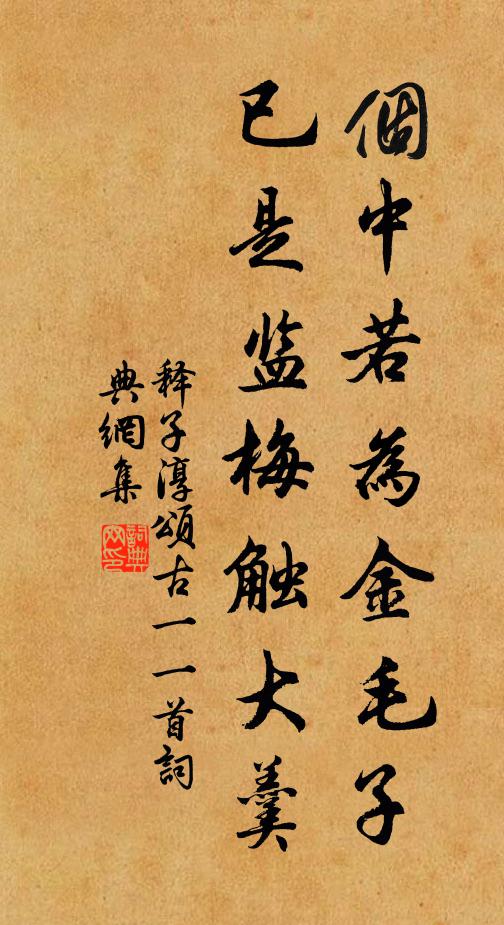 個中若為金毛子
已是监梅触大羹
释子淳頌古一一首詞
典網集
詞典
网印